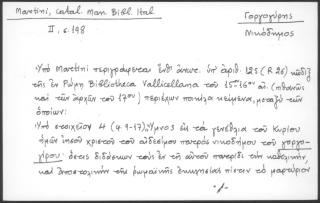 Martini, Catal. Man. Bibl. Ital
II, σ. 198
Γοργογύρης
Νικόδημος
Ὑπὸ Martini περιγράφεται ἐνθ' ἀνωτ. ὑπ' ἀριθ. 125 (R 26) κῶδιξ
τῆς ἐν Ρώμῃ Bibliotheca Vallicellana τοῦ 15-16ου αἰ. (πιθανῶς
καὶ τῶν ἀρχῶν τοῦ 17ου) περιέχων ποικίλα κείμενα, μεταξὺ τῶν
ὁποίων:
Ὑπὸ στοιχεῖον 4 (φ. 9-17), Ὕμνος εἰς τὰ γενέθλια τοῦ Κυρίου
ἡμῶν Ἰησοῦ Χριστοῦ τοῦ αἰδεσίμου πατρὸς Νικοδήμου τοῦ Γοργο-
γύρου· ὅστις διδάσκων τοὺς ἐν τῇ αὐτοῦ πατρίδι τὴν καθολικὴν,
καὶ ἀποστολικὴν τῆς ῥωμαϊκῆς ἐκκλησίας πίστιν τὸ μαρτύριον
-/-